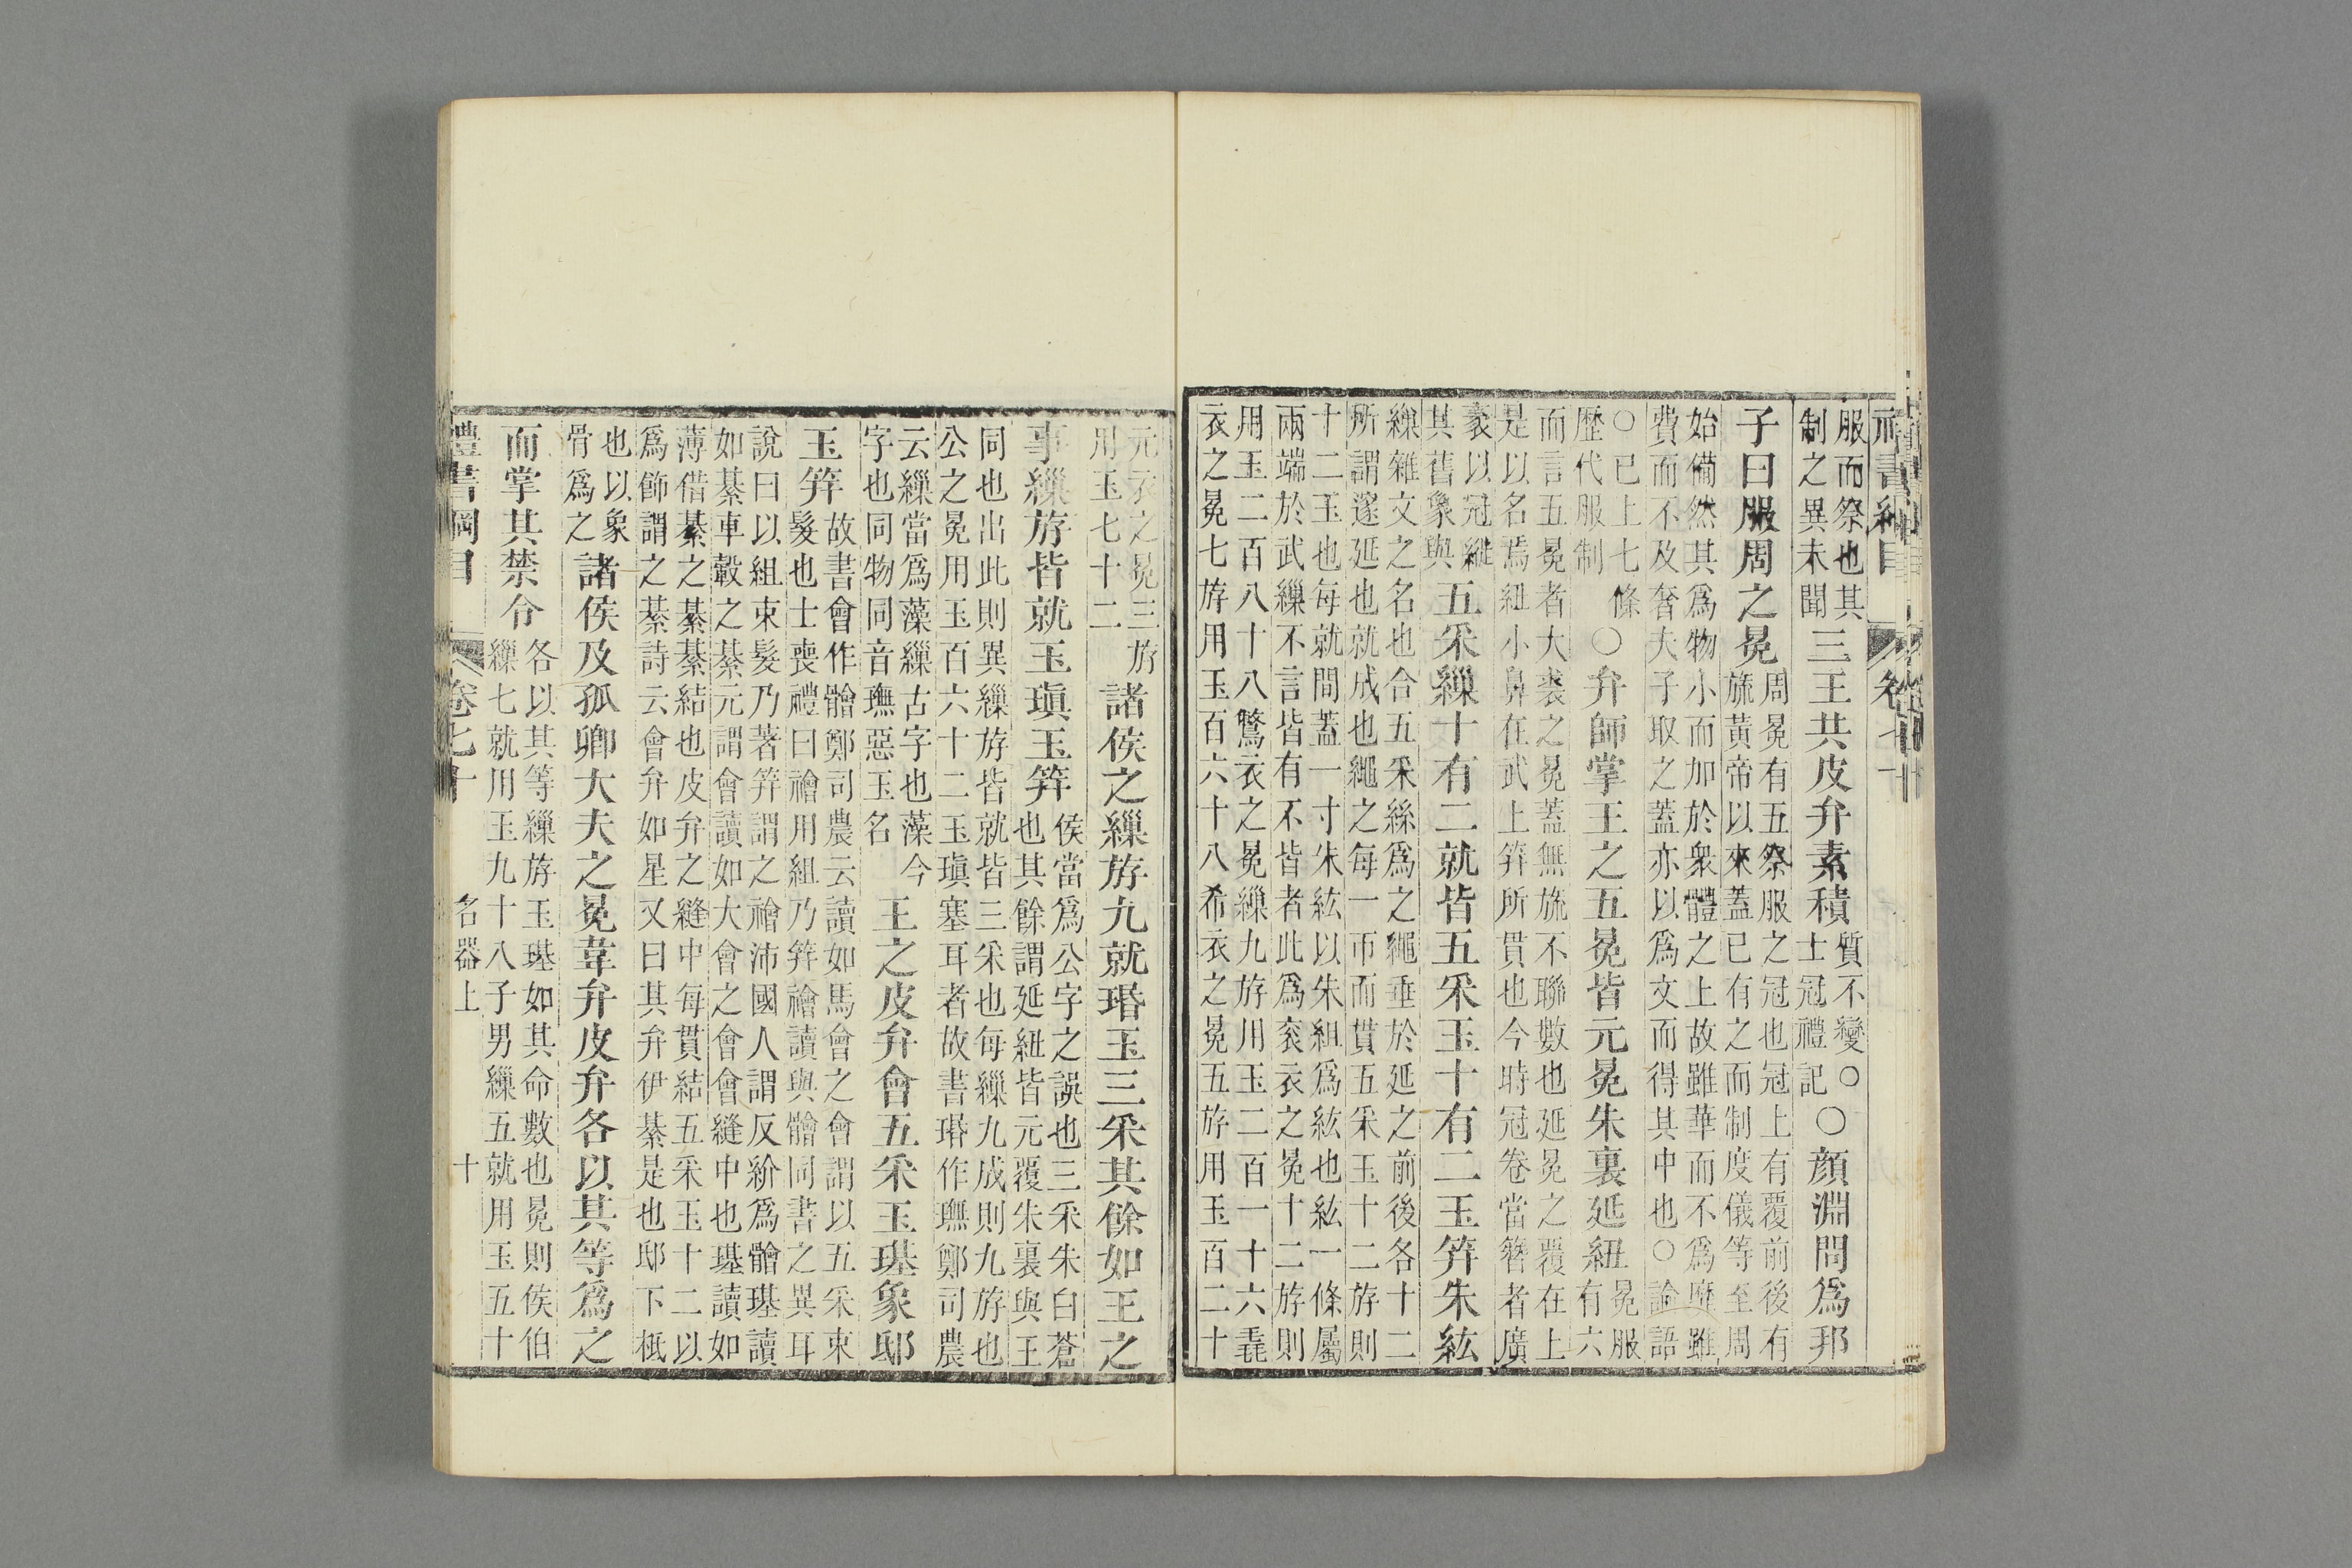 禮書綱目 卷七十
服而祭也其
制之異未聞
三王共皮弁素積
質不變○
士冠禮記
○顏淵問爲邦
子曰服周之冕
周冕有五祭服之冠也冠上有覆前後有
旒黃帝以來蓋已有之而制度儀等至周
始備然其爲物小而加於衆體之上故雖華而不爲靡雖
費而不及奢夫子取之蓋亦以爲文而得其中也○論語
○已上七條
歷代服制
○弁師掌王之五冕皆元冕朱裏延紐
冕服
有六
而言五冕者大裘之冕蓋無旒不聯數也延冕之覆在上
是以名焉紐小鼻在武上筓所貫也今時冠卷當簪者廣
袤以冠縰
其舊象與
五采繅十有二就皆五采玉十有二玉筓朱紘
繅雜文之名也合五采絲爲之繩垂於延之前後各十二
所謂邃延也就成也繩之每一帀而貫五采玉十二斿則
十二玉也每就間蓋一寸朱紘以朱組爲紘也紘一條屬
兩端於武繅不言皆有不皆者此爲袞衣之冕十二斿則
用玉二百八十八鷩衣之冕繅九斿用玉二百一十六毳
衣之冕七斿用玉百六十八希衣之冕五斿用玉百二十
元衣之冕三斿
用玉七十二
諸侯之繅斿九就瑉玉三采其餘如王之
事繅斿皆就玉瑱玉筓
侯當爲公字之誤也三采朱白蒼
也其餘謂延紐皆元覆朱裏與王
同也出此則異繅斿皆就皆三采也每繅九成則九斿也
公之冕用玉百六十二玉瑱塞耳者故書瑉作璑鄭司農
云繅當爲藻繅古字也藻今
字也同物同音璑惡玉名
王之皮弁會五采玉璂象邸
玉筓
故書會作䯤鄭司農云讀如馬會之會謂以五采束
髮也士喪禮曰檜用組乃筓檜讀與䯤同書之異耳
說曰以組束髮乃著筓謂之檜沛國人謂反紒爲䯤璂讀
如綦車轂之綦元謂會讀如大會之會會縫中也璂讀如
薄借綦之綦綦結也皮弁之縫中每貫結五采玉十二以
爲飾謂之綦詩云會弁如星又曰其弁伊綦是也邸下柢
也以象
骨爲之
諸侯及孤卿大夫之冕韋弁皮弁各以其等爲之
而掌其禁令
各以其等繅斿玉璂如其命數也冕則侯伯
繅七就用玉九十八子男繅五就用玉五十
禮書綱目 卷七十 名器上 十